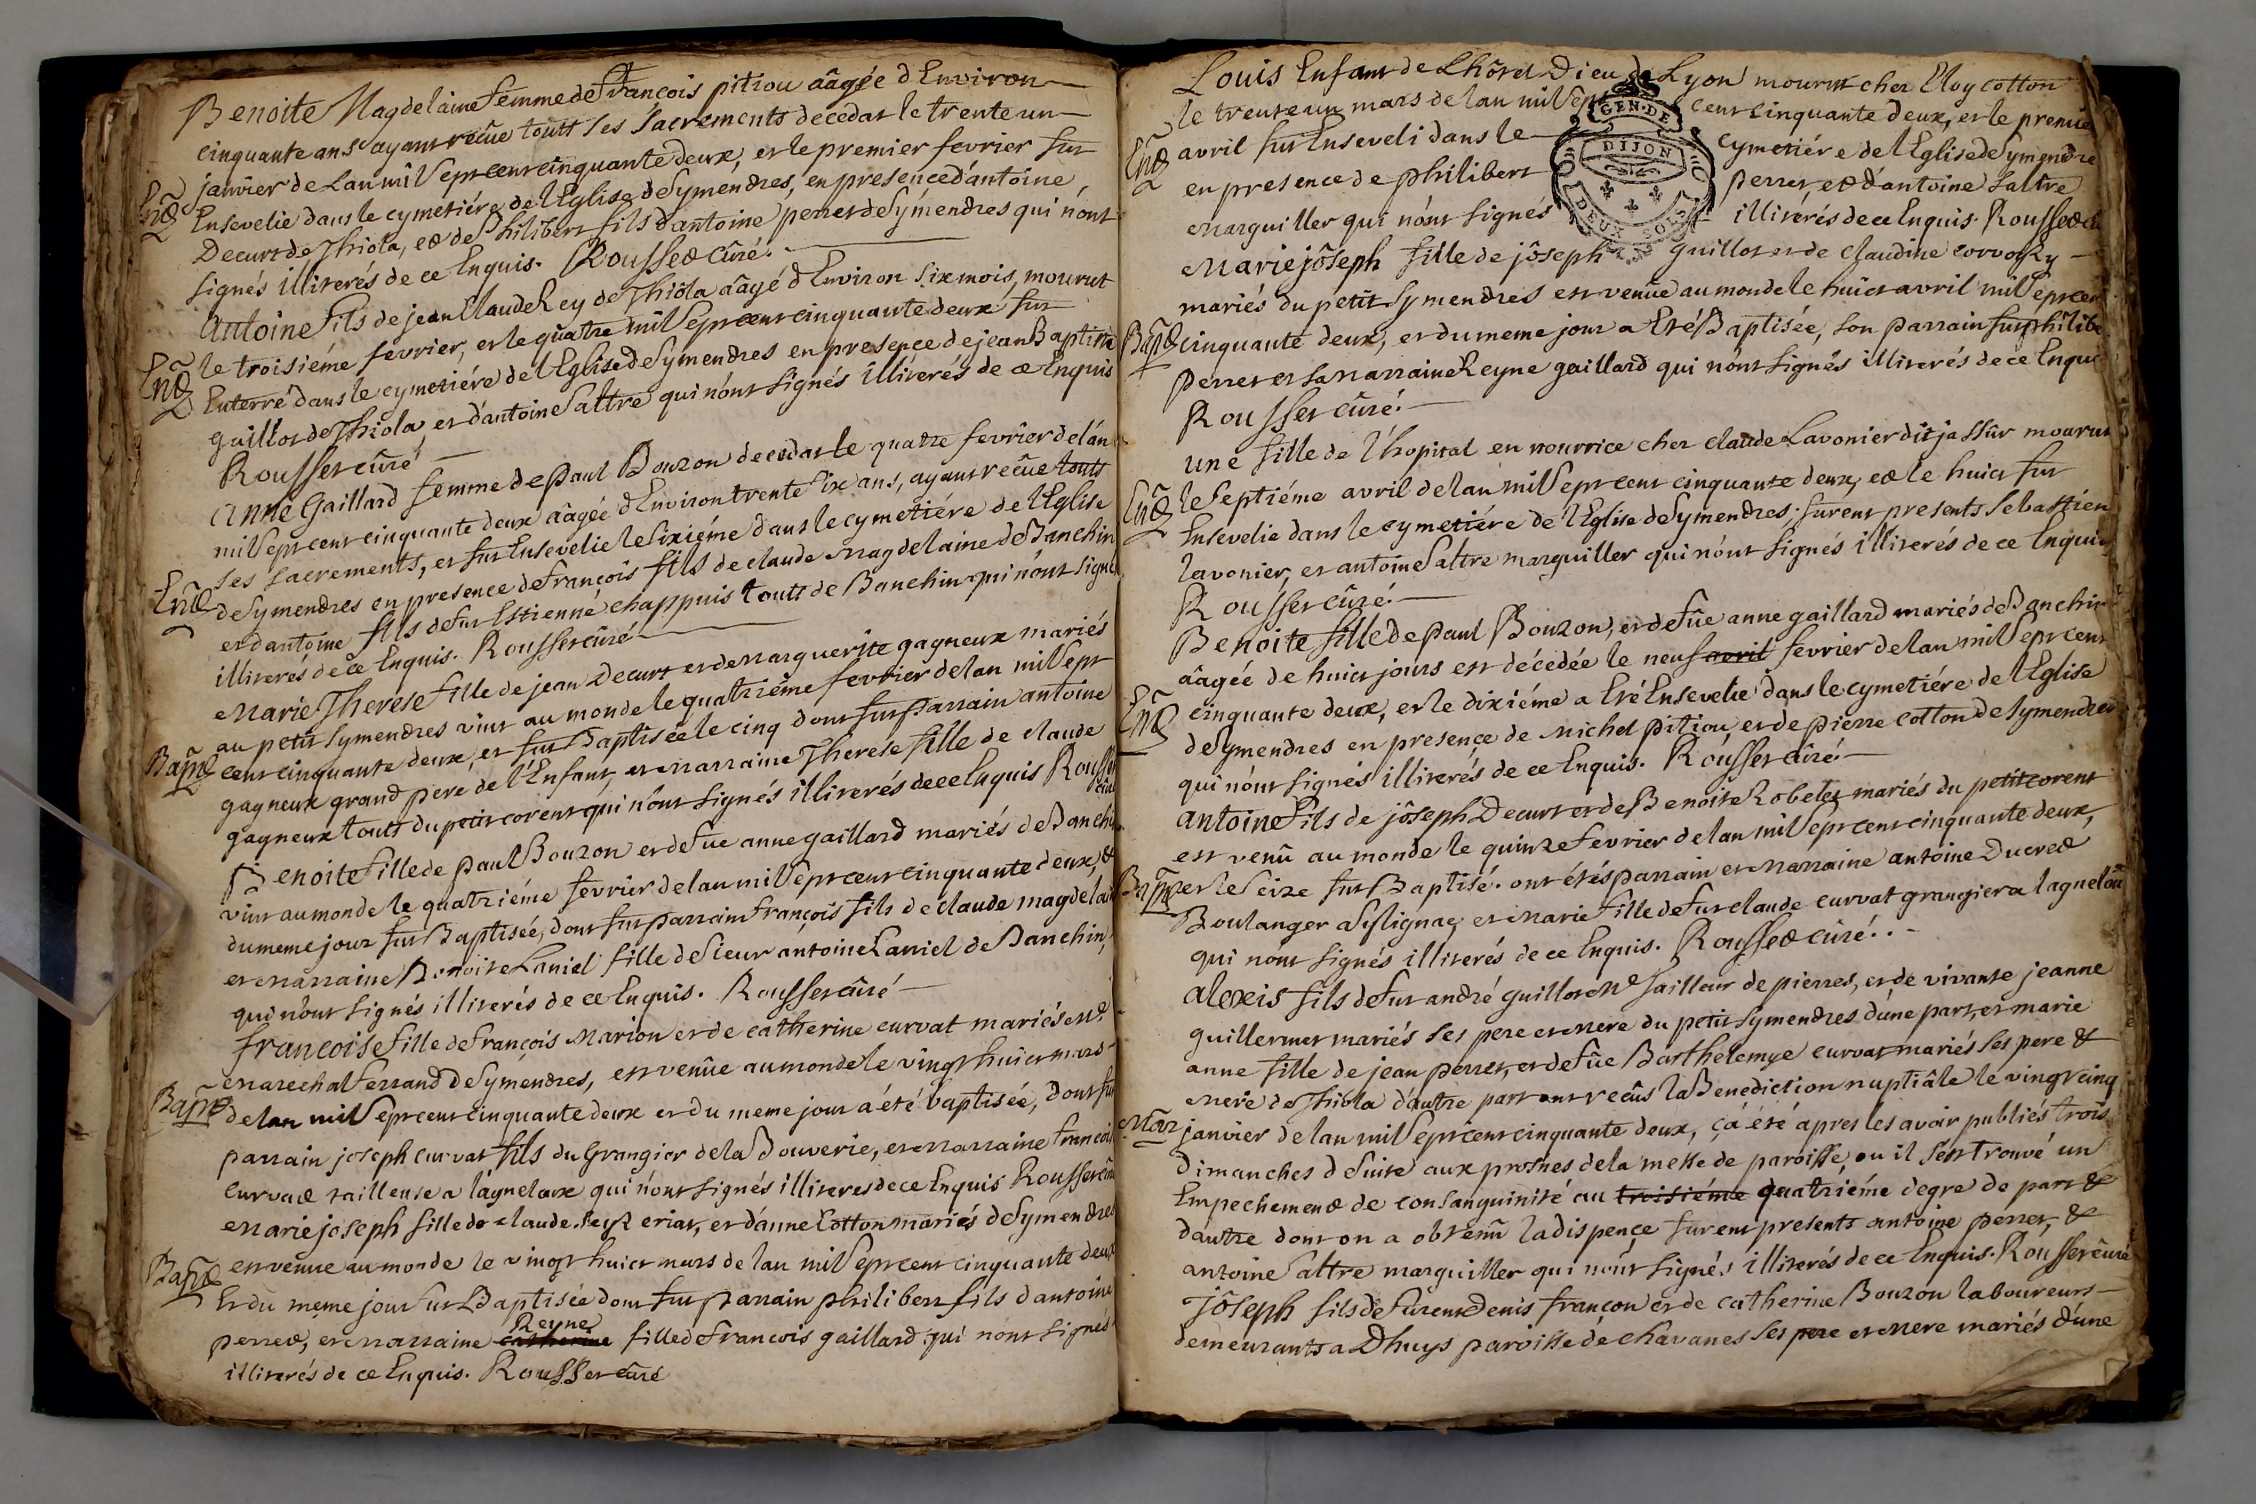 Benoite Magdelaine femme de francois pitiou aâgée d Environ
cinquante ans ayant reçûe touts ses sacrements decedat le trente un
janvier de Lan mil sept cent cinquante deux, et le premier fevrier fut
End Ensevelie dans le cymetiére de l Eglise de Symendres, en presence d'antoine
Decurt de Thiola, et de Philibert fils d'antoine perret de Symendres qui n'ont
signés illiterés de ce Enquis. Rousset cûré.
Antoine fils de jean Claude Rey de Thiola aâgé d Environ six mois, mourut
le troisiéme fevrier, et le quatre mil sept cent cinquante deux fut
End Enterré dans le cymetiére de l Eglise de Symendres en presence de jean Baptiste
guillot de Thiola, et d'antoine saltre qui n'ont signés illiterés de ce Enquis
Rousset cûré
Anne Gaillard femme de paul Bouzon decedat le quatre fevrier de l'an
mil sept cent cinquante deux aâgée d Environ trente six ans, ayant reçûe touts
ses sacrements, et fut Ensevelie le sixiéme dans le cymetiére de l Eglise
End de Symendres en presence de françois fils de claude Magdelaine de Banchin
et d'antoine fils de fut Estienne chappuis touts de Banchin qui n'ont signé
illiterés de ce Enquis. Rousset cûré
Marie Therése fille de jean Decurt et de Marguerite gagneux mariés
au petit Symendres vint au monde le quatriéme fevrier de lan mil sept
Bapt cent cinquante deux, et fut Baptisée le cinq dont fut parrain antoine
gagneux grand pere de l'Enfant, et Marraine Therese fille de claude
gagneux touts du petit corent qui n'ont signés illiterés de ce Enquis Rousset
cûré
Benoite fille de paul Bouzon et de fûe anne gaillard mariés de Banchin
vint au monde le quatriéme fevrier de lan mil sept cent cinquante deux, &
du meme jour fut Baptisée, dont fut parrain françois fils de claude magdelain
et Marraine Benoite Laniel fille de sieur antoine Laniel de Banchin,
qui n'ont signés illiterés de ce Enquis. Rousset cûré
francoise fille de françois Marion et de catherine curvat mariés Me
Marechal ferrand de Symendres, est venûe au monde le vingt huict mars
Bapt de lan mil sept cent cinquante deux et du meme jour a été baptisée, dont fut
parrain joseph curvat fils du Grangier de la Bouverie, et Marraine francoise
curvat tailleuse a lagneloux qui n'ont signés illiteres de ce Enquis Rousset cûré
Marie joseph fille de claude et d'anne Cotton mariés de Symendres
Bapt est venue au monde le vingt huict mars de lan mil sept cent cinquante deux
Et du meme jour fut Baptisée dont fut parrain philibert fils d antoine
perret, et Marraine catherine Reyne fille de francois gaillard qui n'ont signés
illiterés de ce Enquis. Rousset cûré
Louis Enfant de Lhôtel Dieu de Lyon mourut chez Eloy cotton
le trente un mars de lan mil sept cent cinquante deux, et le premier
End avril fut Enseveli dans le cymetiére de l Eglise de Symendre
en presence de philibert perret, et d'antoine saltre
Marguiller qui n'ont signés illiterés de ce Enquis. Rousset cû
GEN. DE
DIJON
DEUX SOLS
Marie jôseph fille de jôseph guillot et de claudine
mariés du petit Symendres est venûe au monde le huict avril mil sept cent
Bapt cinquante deux, et du meme jour a Eté Baptisée, son parrain fut philibe
perret et sa Marraine Reyne gaillard qui n'ont signés illiterés de ce Enqui
Rousset cûré.
une fille de l'hopital en nourrice chez claude Lavonier dit jassûr mourut
End le septiéme avril de lan mil sept cent cinquante deux, et le huict fut
Ensevelie dans le cymetiére de l Eglise de Symendres; furent presents sebastien
lavonier, et antoine saltre marguiller qui n'ont signés illiterés de ce Enquis
Rousset cûré.
Benoite fille de paul Bouzon, et de fûe anne gaillard mariés de Banchin
aâgée de huict jours est décédée le neuf avril fevrier de lan mil sept cent
End cinquante deux, et le dixiéme a Eté Ensevelie dans le cymetiére de l Eglise
de Symendres en presence de Michel pitiou, et de pierre cotton de Symendres
qui n'ont signés illiterés de ce Enquis. Rousset cûré.
antoine fils de jôseph Decurt et de Benoite Robelet mariés du petit corent
est venû au monde le quinze fevrier de lan mil sept cent cinquante deux,
Bapt et le seize fut Baptisé. ont étés parrain et Marraine antoine Ducret
Boulanger a Silignac, et Marie fille de fut claude curvat grangier a lagneloux
qui n'ont signés illiterés de ce Enquis. Rousset cûré.
Alexis fils de fut andré guillot Me tailleur de pierres, et de vivante jeanne
guillermet mariés ses pere et Mere du petit Symendres d'une part, et marie
anne fille de jean perret, et de fûe Barthelemye curvat mariés ses pere &
Mere de Thiola d'autre part ont reçûs la Benediction nuptiâle le vingt cinq
Mar janvier de lan mil sept cent cinquante deux, ç'a été apres les avoir publiés trois
Dimanches de suite aux prosnes de la messe de paroisse, ou il s'est trouvé un
Empechement de consanguinité au troisiéme quatriéme degre de part &
d'autre dont on a obtenû la dispence furent presents antoine perret, &
antoine saltre marguiller qui n'ont signés illiterés de ce Enquis. Rousset cûré
Jôseph fils de furent Denis françon et de catherine Bouzon laboureurs
demeurants a Dhuys paroisse de chavanes ses pere et Mere mariés d'une